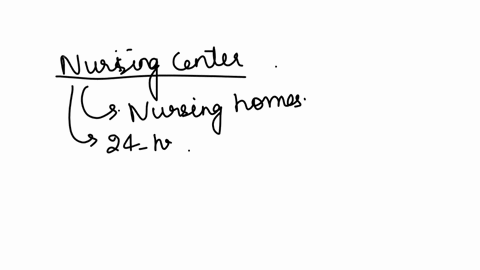 Nursing Center
Nursing homes.
24-hr